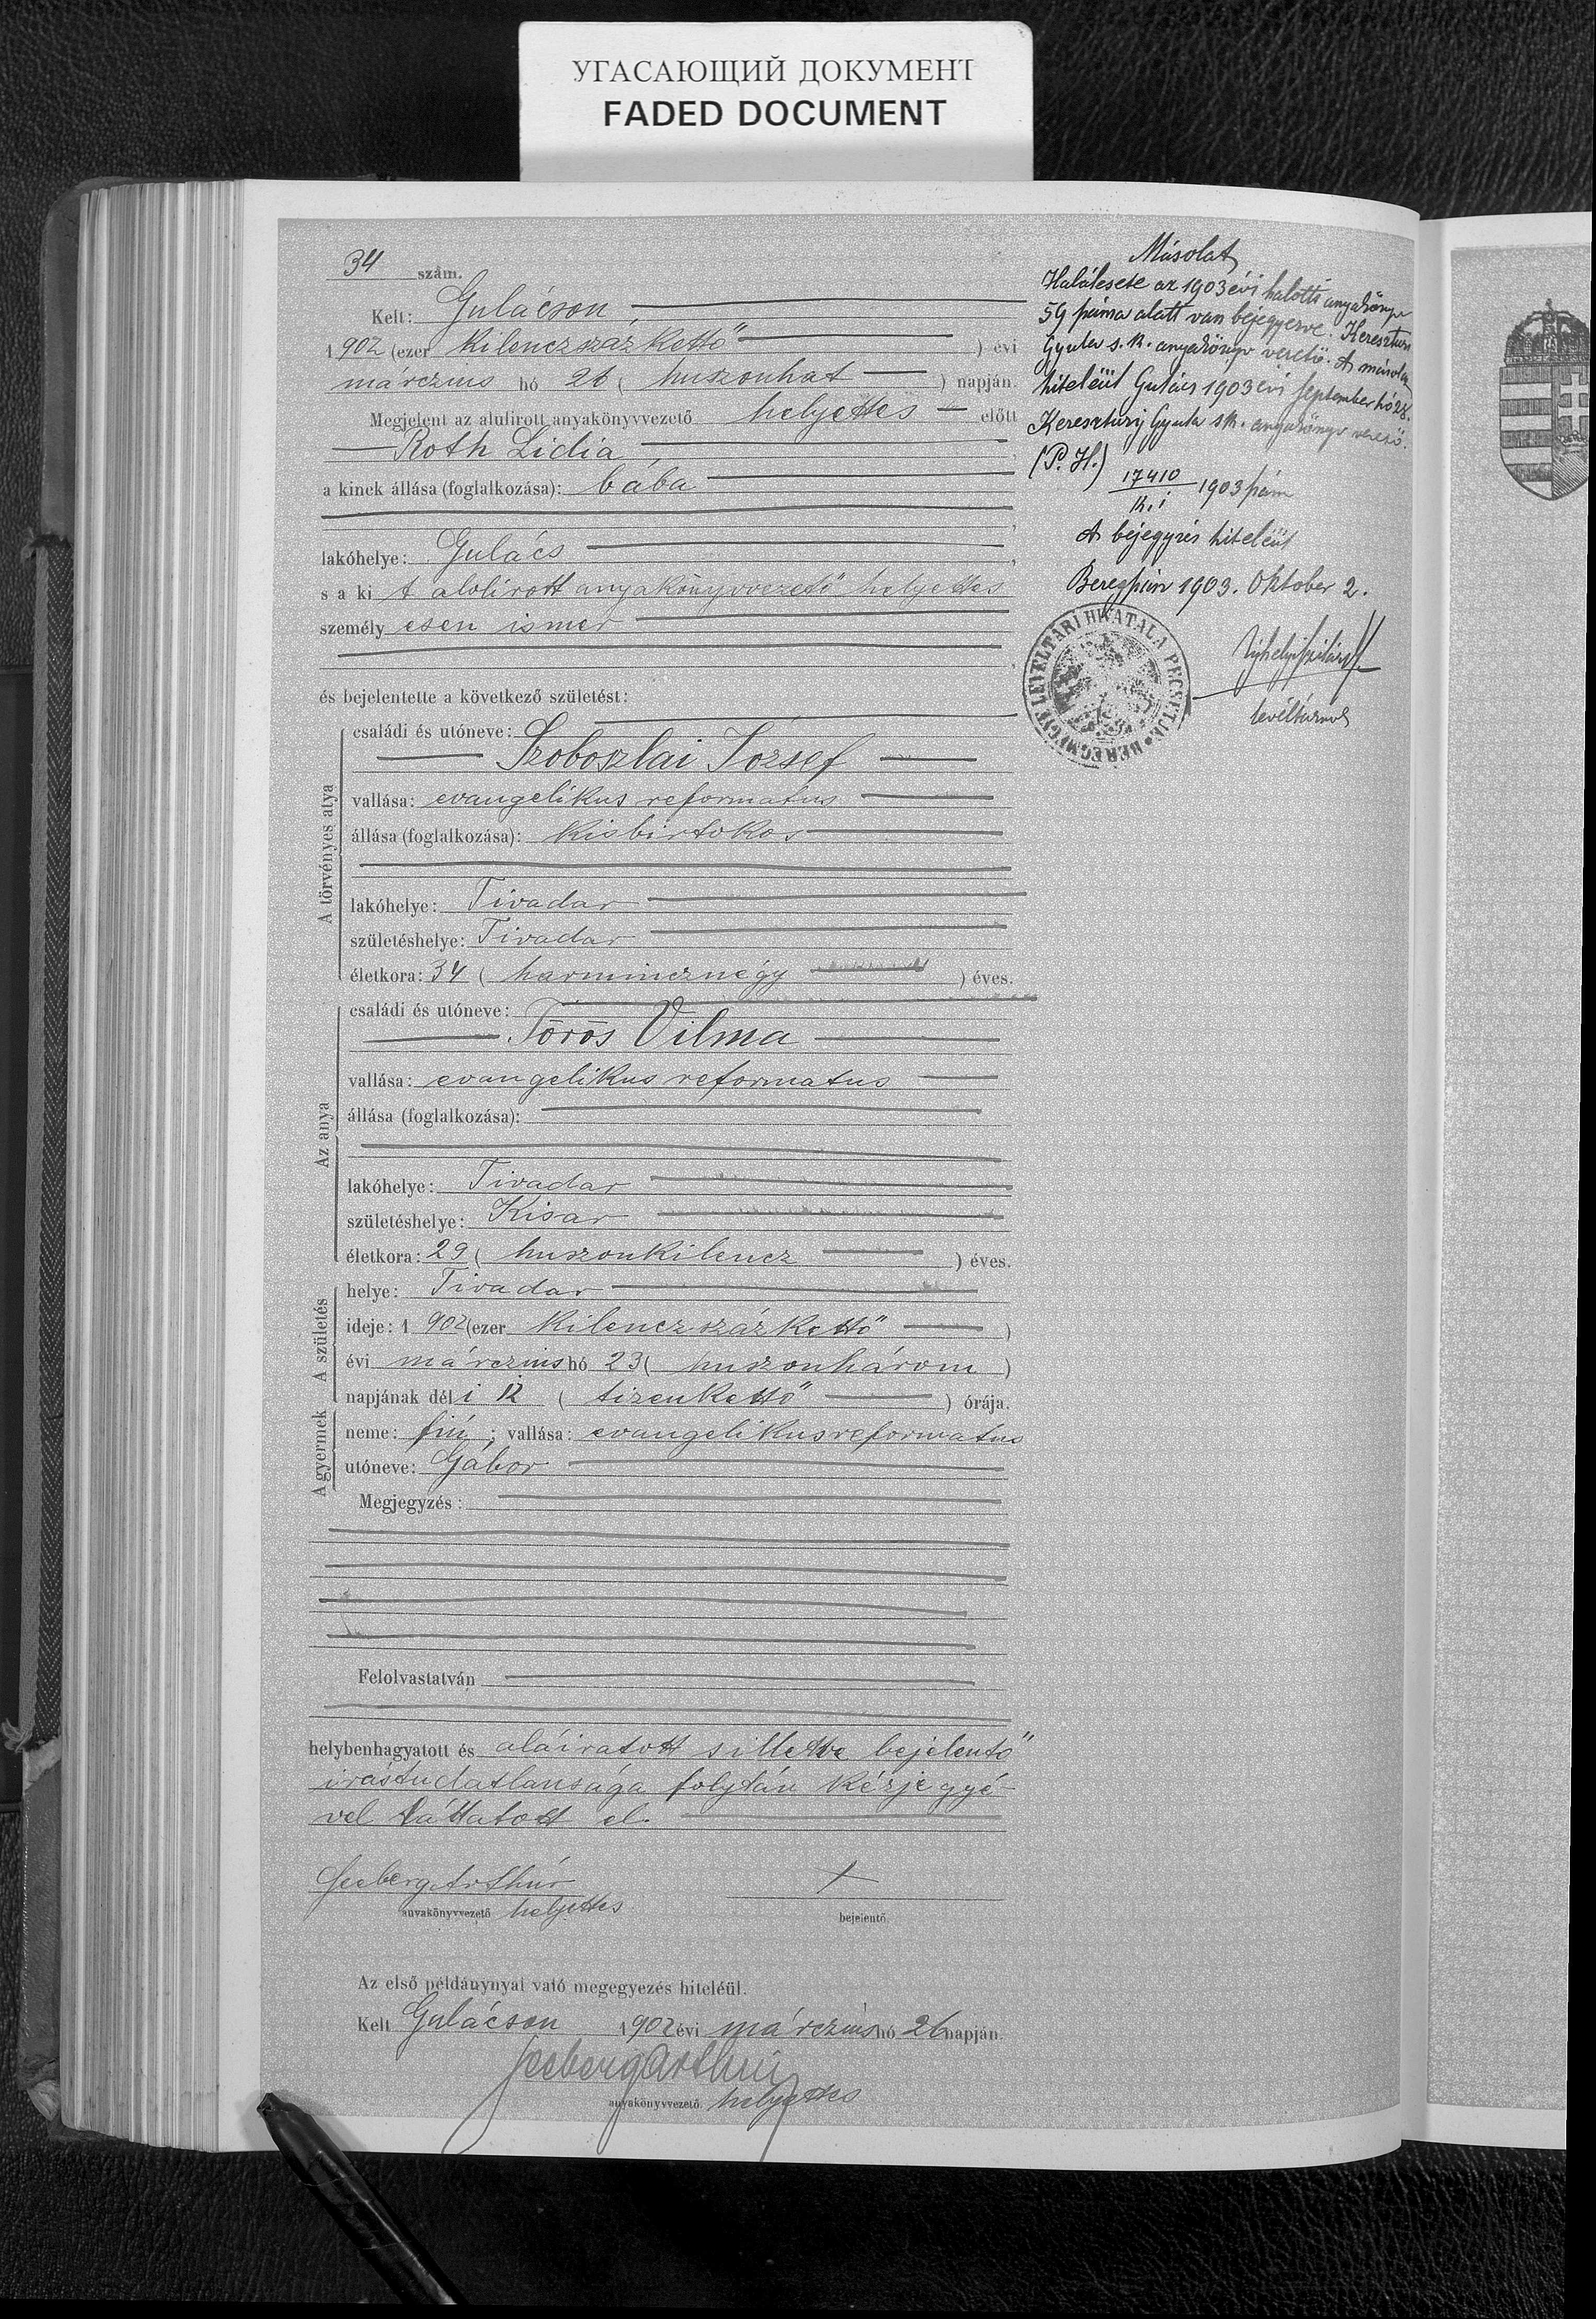 УГАСАЮЩИЙ ДОКУМЕНТ
FADED DOCUMENT
34 szám.
Kelt: Gulácson
1902 (ezer kilenczszázkettő) évi
márczius hó 26 (huszonhat) napján.
Megjelent az alulirott anyakönyvvezető helyettes előtt
Roth Lidia
a kinek állása (foglalkozása): bába
lakóhelye: Gulács
s a kit alolirott anyakönyvvezető helyettes
személyesen ismer
és bejelentette a következő születést:
A törvényes atya
családi és utóneve:
Szoboszlai József
vallása: evangelikus reformatus
állása (foglalkozása): kisbirtokos
lakóhelye: Tivadar
születéshelye: Tivadar
életkora: 34 (harmincznégy) éves.
Az anya
családi és utóneve:
Törös Vilma
vallása: evangelikus reformatus
állása (foglalkozása):
lakóhelye: Tivadar
születéshelye: Kisar
életkora: 29 (huszonkilencz) éves.
A születés
helye: Tivadar
ideje: 1902 (ezer kilenczszázkettő)
évi márczius hó 23 (huszonhárom)
napjának déli 12 (tizenkettő) órája.
A gyermek
neme: fiú; vallása: evangelikus reformatus
utóneve: Gábor
Megjegyzés:
Felolvastatván
helybenhagyatott és aláiratott s illetve bejelentő
irástudatlansága folytán kézjegyé-
vel láttatott el.
Seeberg Arthúr
anyakönyvvezető helyettes
+
bejelentő.
Az első példánynyal való megegyezés hiteléül.
Kelt Gulácson 1902 évi márczius hó 26 napján.
Seeberg Arthúr
anyakönyvvezető. helyettes
Másolat
Halálesete az 1903 évi halotti anyakönyv
59 száma alatt van bejegyezve. Keresztury
Gyula s. k. anyakönyvvezető. A másolat
hiteléül Gulács 1903 évi September hó 28.
Keresztúry Gyula s.k. anyakönyvvezető.
(P. H.)
17410
k.i 1903 szám
A bejegyzés hiteléül
Beregszász 1903. Oktober 2.
levéltárnok
BEREGMEGYE LEVÉLTÁRI HIVATALA PECSÉTJE